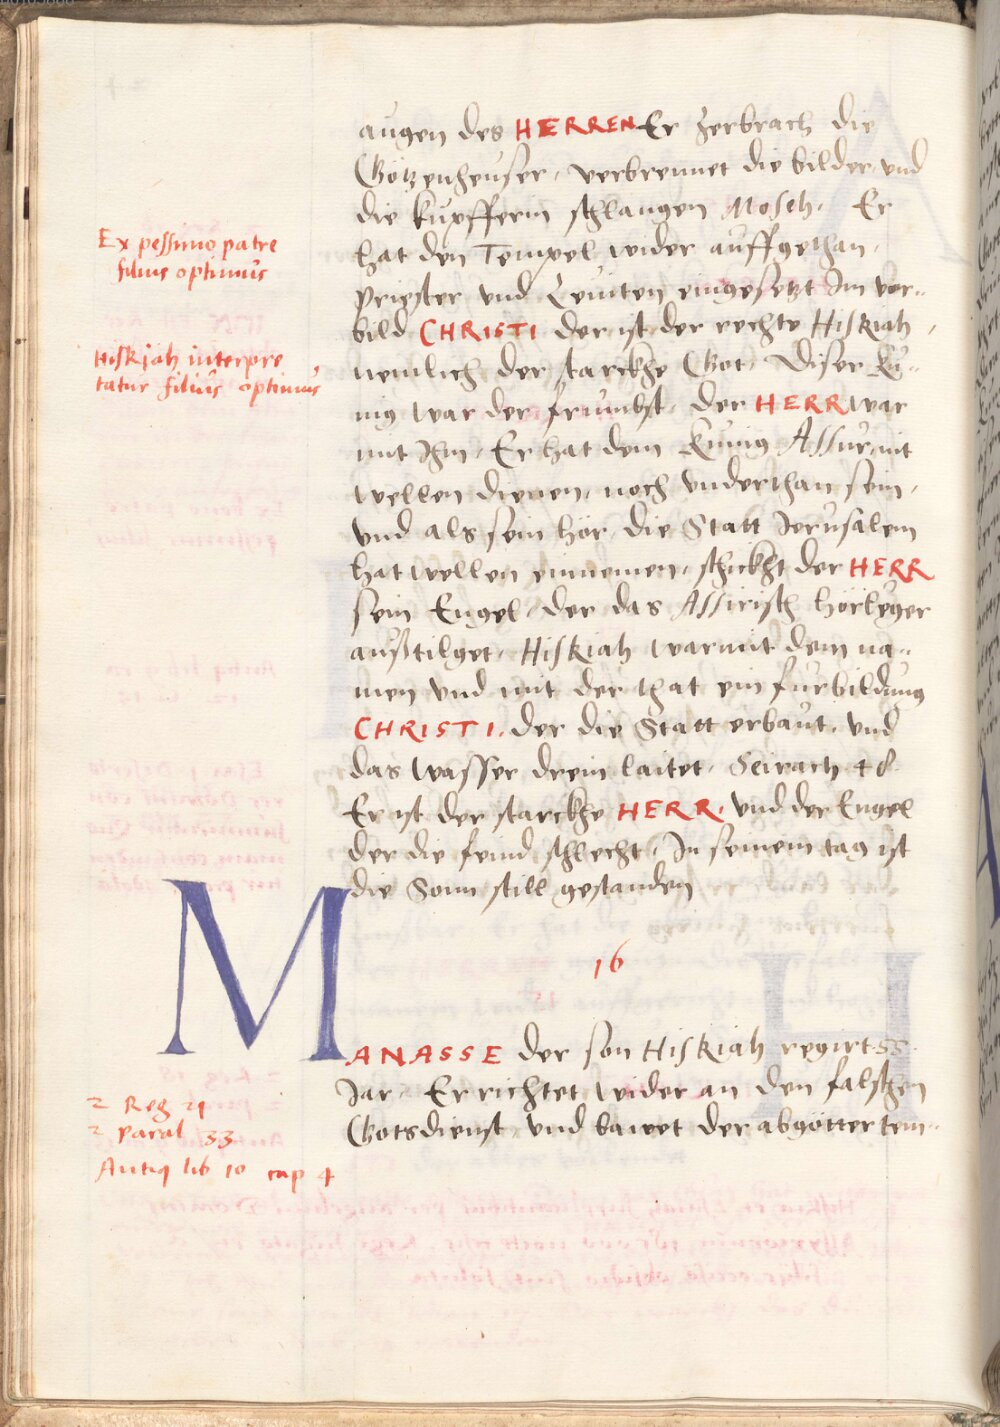 augen des HERREN Er zerbrach die
Götzenheuser, verbrennet die bilder und
die kupfferin schlangen Mosch. Er
hat den Tempel wider auffgethan,
Priester vnd Leuiten eingesetzt Im vor-
bild CHRISTI der ist der rechte Hiskiah,
nemlich der starckhe Got, Diser Ku-
nig war der frumbst, der HERR war
mit Ihm, Er hat dem Kunig Assur nit
wellen dienen, noch vnderthan sein,
vnd als sein hör die Statt Jerusalem
hat wellen einnemen, schickht der HERR
sein Engel, der das Assirisch hörleger
außtilget, Hiskiah war mit dem na-
men vnd mit der that ein furbildung
CHRISTI, der die Statt erbaut, vnd
das wasser drein laitet, Seirach 48
Er ist der starckhe HERR, vnd der Engel
der die feind schlecht, In seinem tag ist
die Sonn still gestanden
Ex pessimo patre
filius optimus
Hiskiah interpre
tatur filius optimus
16
MANASSE der son Hiskiah regirt 55.
Jar, Er richtet wider an den falschen
Gotsdienst, vnd bawet der abgötter tem-
2 Reg 21
2 paral 33
Antiq lib 10 cap 4